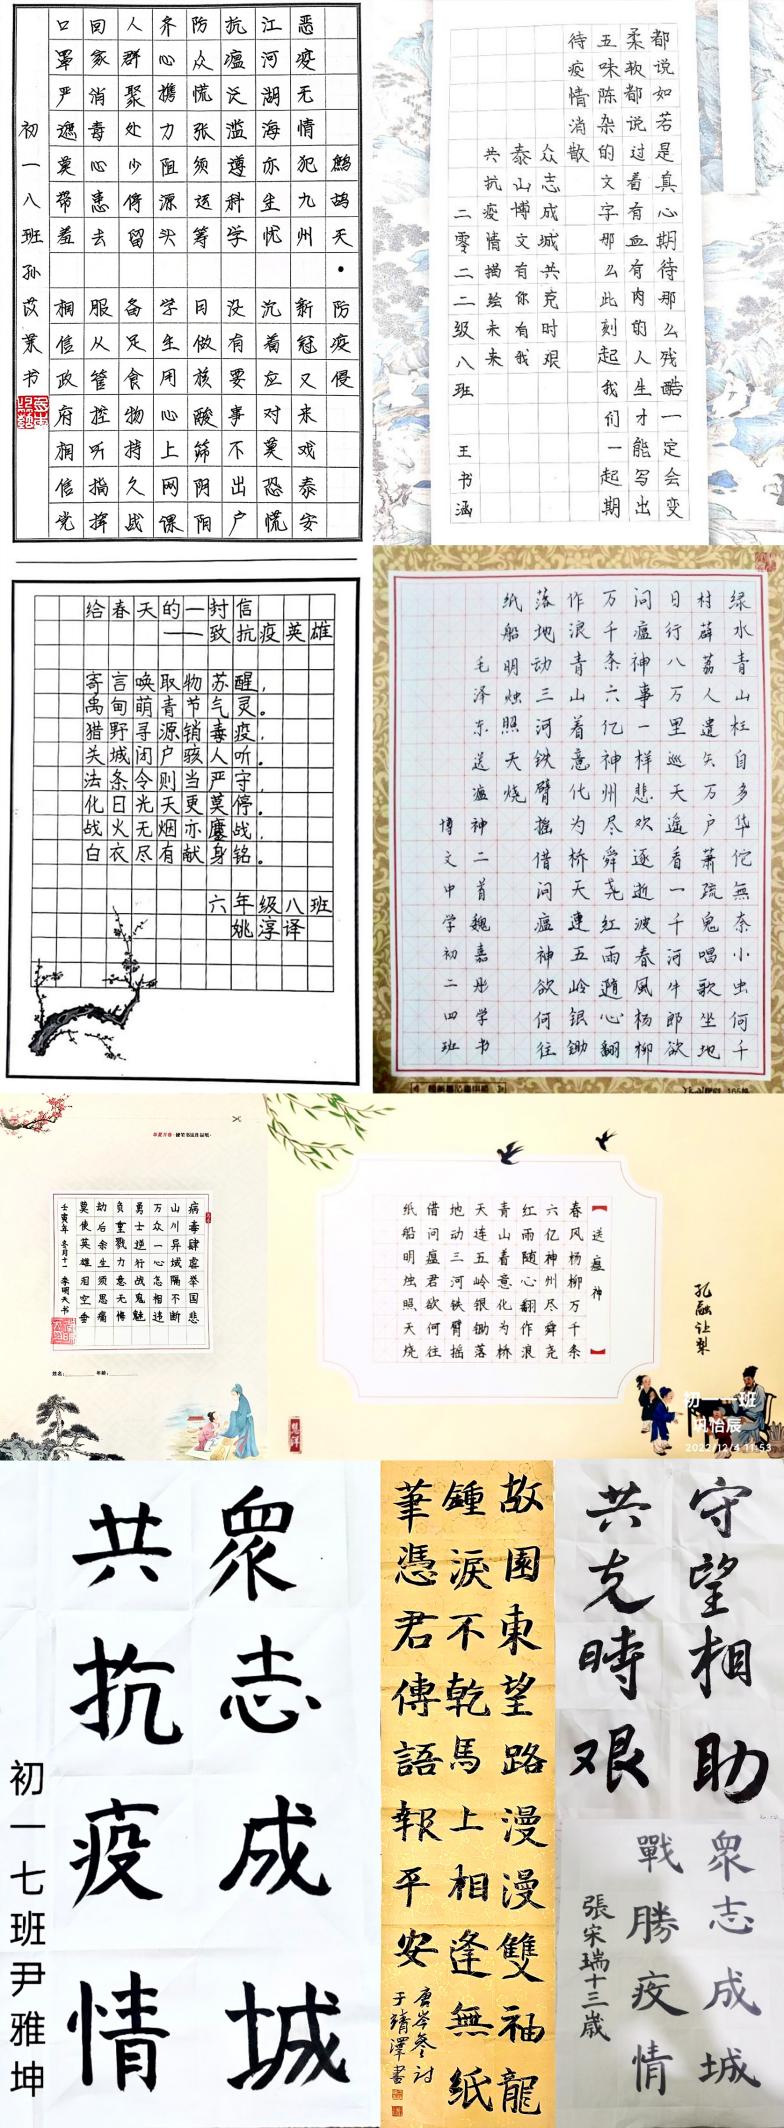 鹧鸪天·防疫侵
恶疫无情犯九州 新冠又来戏泰安
江河湖海亦生忧 沉着应对莫恐慌
抗瘟泛滥遵科学 没有要事不出户
防众慌张须运筹 目做核酸筛阴阳
齐心携力阻源头 学生用心上网课
人群聚处少停留 备足食物持久战
回家消毒心患去 服从管控听指挥
口罩严遮莫带羞 相信政府相信党
初一八班孙苡荣书
都说如若是真心期待那么残酷一定会变
柔软都说过着有血有肉的人生才能写出
五味陈杂的文字那么此刻起我们一起期
待疫情消散
众志成城共克时艰
泰山博文有你有我
共抗疫情描绘未来
二零二二级八班 王书涵
给春天的一封信
——致抗疫英雄
寄言唤取物苏醒，
禹甸萌青节气灵。
猎野寻源销毒疫，
关城闭户骇人听。
法条令则当严守，
化日光天更莫停。
战火无烟亦鏖战，
白衣尽有献身铭。
六年级八班
姚淳译
绿水青山枉自多华佗無奈小虫何千
村薜荔人遗矢万户萧疏鬼唱歌坐地
日行八万里巡天遥看一千河牛郎欲
问瘟神事一样悲欢逐逝波春風杨柳
万千条六亿神州尽舜尧红雨随心翻
作浪青山着意化为桥天连五岭银锄
落地动三河铁臂摇借问瘟神欲何往
纸船明烛照天烧
毛泽东送瘟神二首魏嘉彤学书
博文中学初二四班
病毒肆虐举国悲
山川异域隔不断
万众一心怎相违
勇士逆行战鬼魅
负重戮力意无悔
劫后余生须思痛
莫使英雄泪空垂
壬寅年 冬月十一 李明天书
姓名：
年龄：
【送瘟神】
春风杨柳万千条
六亿神州尽舜尧
红雨随心翻作浪
青山着意化为桥
天连五岭银锄落
地动三河铁臂摇
借问瘟君欲何往
纸船明烛照天烧
孔融让梨
初一一班
怡辰
2022/12/4 11:53
眾志成城
共抗疫情
初一七班尹雅坤
故園東望路漫漫雙袖龍
鍾淚不乾馬上相逢無紙
筆憑君傳語報平安
唐岑参诗
于靖澤書
守望相助
共克時艰
眾志成城
戰勝疫情
張宋瑞十三歲